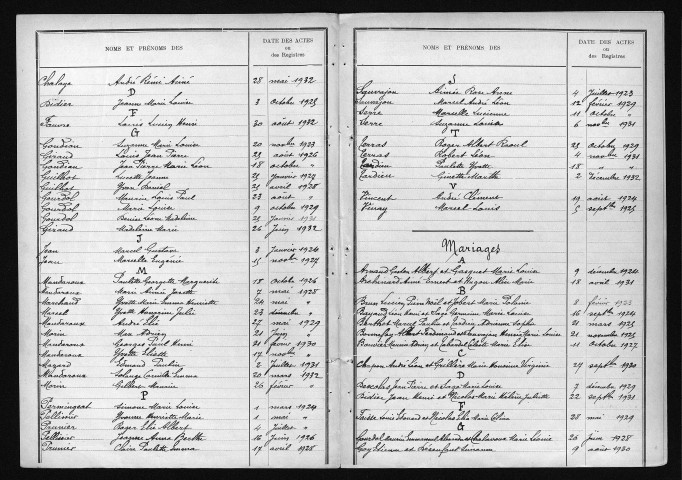 NOMS ET PRÉNOMS DES
DATE DES ACTES
ou
des Registres
Chalaye André Rémi Aimé 28 mai 1932
D
Didier Jeanne Marie Louise 3 octobre 1925
F
Fauvre Louis Lucien Henri 30 août 1932
G
Gourdon Suzanne Marie Louise 20 novbre 1923
Giraud Louis Jean Pierre 23 août 1926
Jean Pierre Marie Léon 18 octobre "
Guilhot Lucette Jeanne 21 janvier 1927
Guilhot Yvon Daniel 21 avril 1928
Gourdol Maurice Louis Paul 23 août "
Gourdol Marie Louise 9 octobre 1929
Gourdol Denise Léone Madeleine 21 janvier 1931
Giraud Madeleine Marie 26 juin 1932
J
Jean Marcel Gustave 3 janvier 1924
Jean Marcelle Eugénie 15 novbre 1927
M
Mandaroux Paulette Georgette Marguerite 18 octobre 1926
Mandaroux Marie Aimée Josette 7 mai 1928
Marchand Yvette Marie Emma Henriette 24 mai "
Marcel Yvette Honorine Julie 23 décembre "
Mandaroux André Elie 27 mai 1929
Morin Max Adrien 20 juin "
Mandaroux Georges Paul Henri 21 février 1930
Mandaroux Yvette Eliette 17 novbre "
Mazard Edmond Paulin 2 juillet 1931
Mandaroux Solange Camille Emma 20 mars 1932
Morin Gilbert Maurice 26 février "
P
Permingeat Simone Marie Louise 1 mars 1924
Pellissier Yvonne Henriette Marie 1 mai "
Prunier Roger Elie Albert 4 juillet "
Pellissier Jeanne Anna Berthe 16 juin 1926
Prunier Claire Paulette Emma 17 avril 1928
NOMS ET PRÉNOMS DES
DATE DES ACTES
ou
des Registres
S
Sauvajon Aimée Rose Anna 4 juillet 1923
Sauvajon Marcel André Léon 12 février 1929
Serre Marcelle Lucienne 11 octobre "
Serre Suzanne Louise 6 novbre 1931
T
Terras Roger Albert Raoul 23 octobre 1929
Terras Robert Léon 4 novbre 1931
Tardieu Paulette Yvette 18 " "
Tardieu Ginette Marthe 2 décembre 1932
V
Vincent André Clément 19 août 1924
Vinay Marcel Louis 5 septbre 1925
Mariages
A
Arnaud Gaston Albert et Gasquet Marie Louise 9 décembre 1924
Ernest et Marie 18 avril 1931
B
Brun Lucien et Marie 8 février 1923
et Sagé Germaine Marie Louise 16 septbre 1924
Berthet Marcel Paulin et 21 mars 1925
21 novembre 1925
11 octobre 1927
C
André Léon et Marie Honorine Virginie 27 septbre 1930
D
Descoles Jean Pierre et Sagé Marie Louise 7 décembre 1929
Didier Jean Henri et Nicolas Marie Hélène Juliette 22 septbre 1931
F
Faisse Aimé Edouard et Nicolas Marie 28 mai 1929
G
Gourdol Maurice et Marie Léonie 26 juin 1928
Guy Etienne et Suzanne 9 août 1930